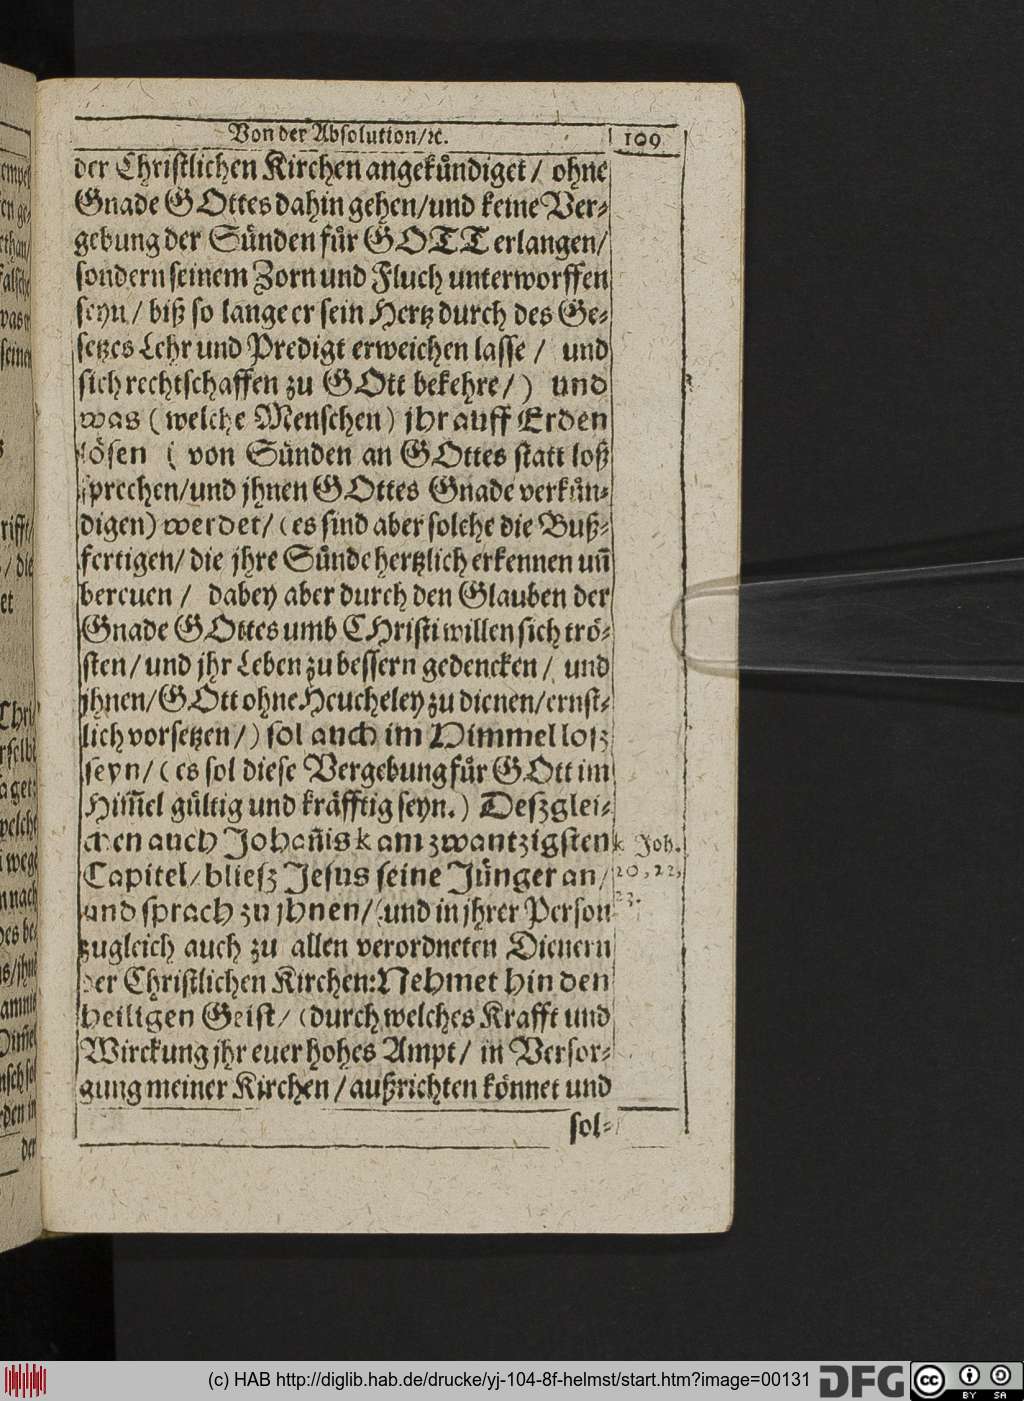 Von der Absolution/ꝛc. 109
der Christlichen Kirchen angekündiget/ ohne
Gnade GOttes dahin gehen/und keine Ver-
gebung der Sünden für GOTT erlangen/
sondern seinem Zorn und Fluch unterworffen
seyn/ biß so lange er sein Hertz durch des Ge-
setzes Lehr und Predigt erweichen lasse / und
sich rechtschaffen zu GOtt bekehre/) und
was (welche Menschen) jhr auff Erden
lösen ( von Sünden an GOttes statt loß
sprechen/und jhnen GOttes Gnade verkün-
digen) werdet/ (es sind aber solche die Buß-
fertigen/ die jhre Sünde hertzlich erkennen uñ
bereuen / dabey aber durch den Glauben der
Gnade GOttes umb CHristi willen sich trö-
sten/ und jhr Leben zu bessern gedencken/ und
jhnen/GOtt ohne Heucheley zu dienen/ernst-
lich vorsetzen/) sol auch im Himmel loß
seyn/ (es sol diese Vergebung für GOtt im
Him̃el gültig und kräfftig seyn.) Deßglei-
chen auch Johañis k am zwantzigsten
k Joh.
Capitel/ bließ Jesus seine Jünger an/
20, 22,
und sprach zu jhnen/ (und in jhrer Person
23.
zugleich auch zu allen verordneten Dienern
der Christlichen Kirchen: Nehmet hin den
heiligen Geist/ (durch welches Krafft und
Wirckung jhr euer hohes Ampt/ in Versor-
gung meiner Kirchen / außrichten könnet und
sol-
(c) HAB http://diglib.hab.de/drucke/yj-104-8f-helmst/start.htm?image=00131
DFG
cc BY SA